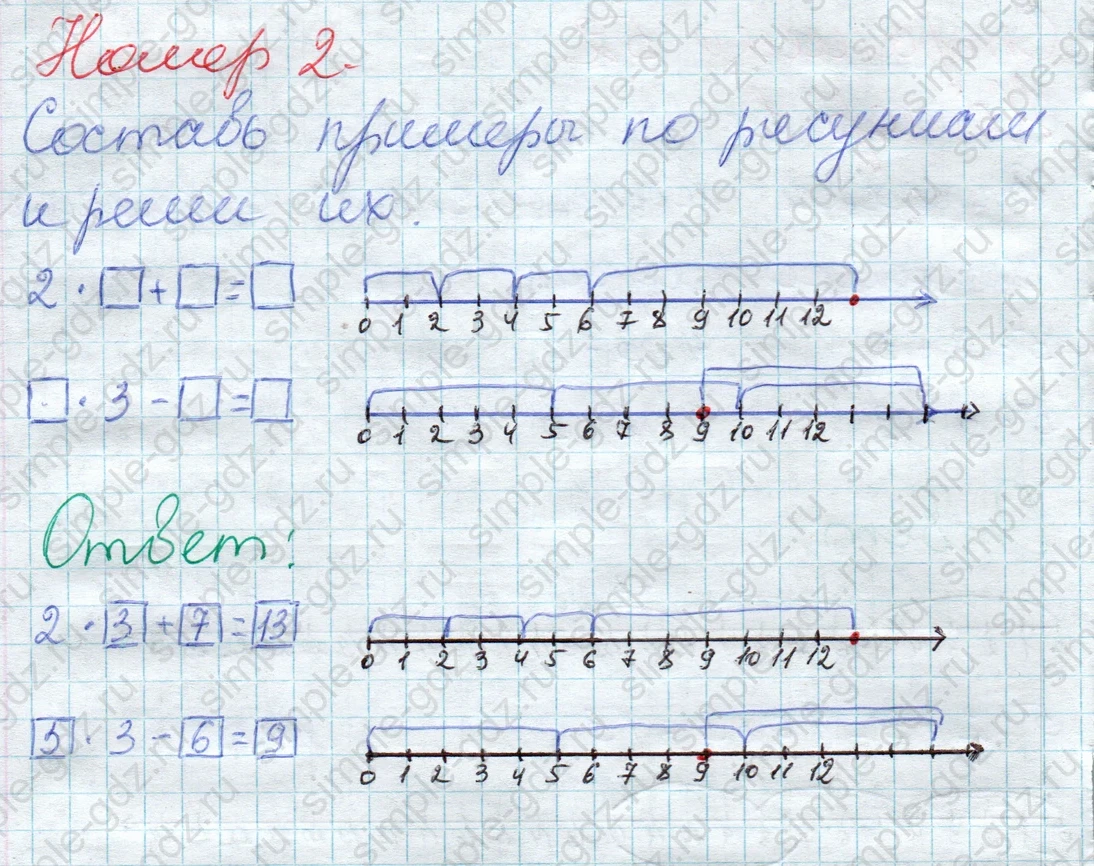 Номер 2.
Составь примеры по рисункам
и реши их.
2 · □ + □ = □
0 1 2 3 4 5 6 7 8 9 10 11 12
□ · 3 - □ = □
0 1 2 3 4 5 6 7 8 9 10 11 12
Ответ:
2 · 3 + 7 = 13
0 1 2 3 4 5 6 7 8 9 10 11 12
5 · 3 - 6 = 9
0 1 2 3 4 5 6 7 8 9 10 11 12
simple-gdz.ru